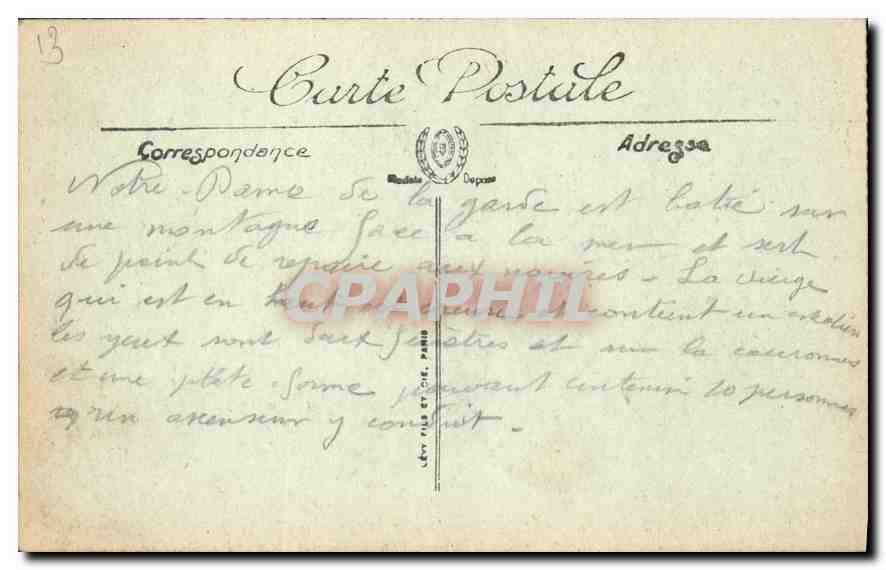 13
Carte Postale
Correspondance
Adresse
Modèle Déposé
Notre-Dame de la garde est batie sur
une montagne face a la mer et sert
de point de repaire aux navires - La vierge
qui est en haut est creuse et contient un escalier
les yeux sont deux fenêtres et sur la couronne
et une plate-forme pouvant contenir 10 personnes
un ascenseur y conduit.
LÉVY FILS ET CIE, PARIS
CPAPHIL